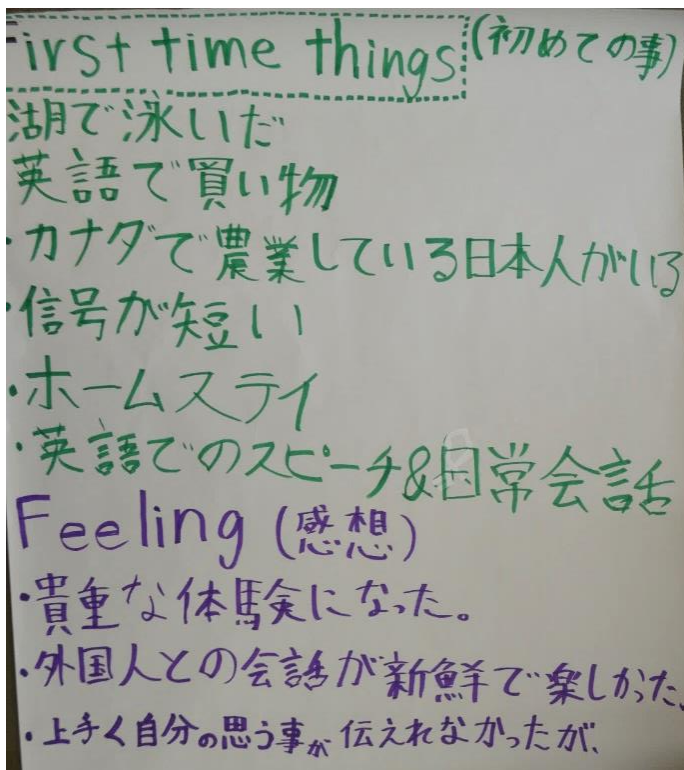 First time things (初めての事)
湖で泳いだ
英語で買い物
・カナダで農業している日本人がいる
・信号が短い
・ホームステイ
・英語でのスピーチ&日常会話
Feeling (感想)
・貴重な体験になった。
・外国人との会話が新鮮で楽しかった、
・上手く自分の思う事が伝えれなかったが、